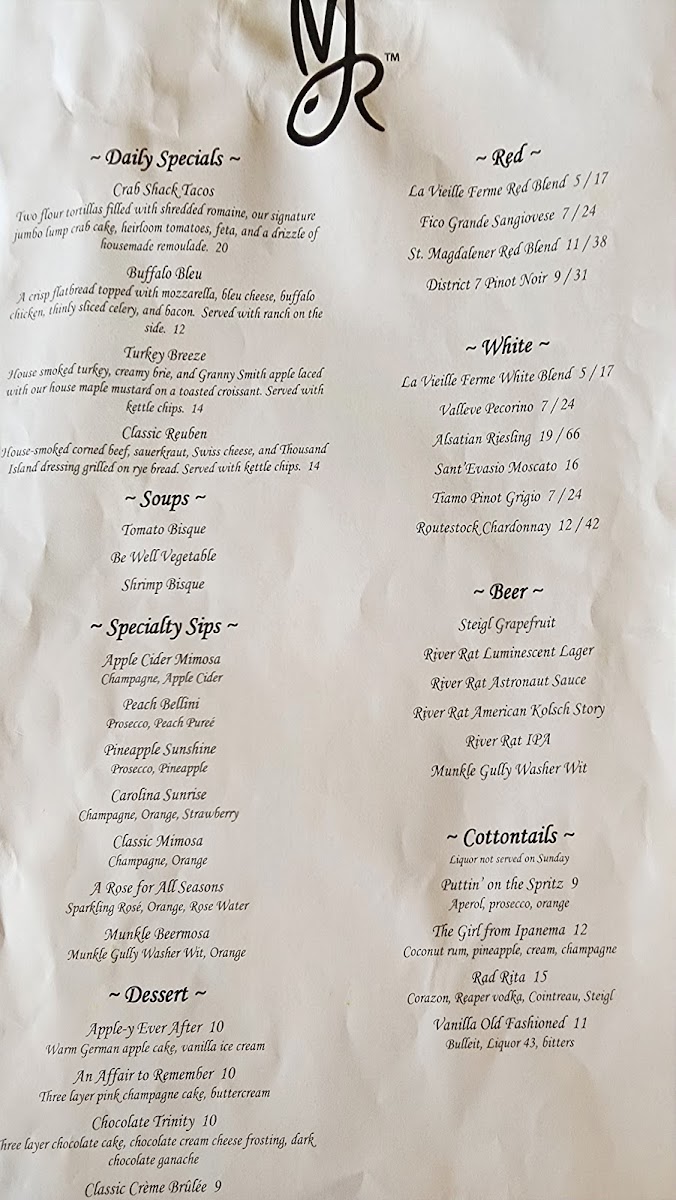 MR™
~ Daily Specials ~
Crab Shack Tacos
Two flour tortillas filled with shredded romaine, our signature
jumbo lump crab cake, heirloom tomatoes, feta, and a drizzle of
housemade remoulade. 20
Buffalo Bleu
A crisp flatbread topped with mozzarella, bleu cheese, buffalo
chicken, thinly sliced celery, and bacon. Served with ranch on the
side. 12
Turkey Breeze
House smoked turkey, creamy brie, and Granny Smith apple laced
with our house maple mustard on a toasted croissant. Served with
kettle chips. 14
Classic Reuben
House-smoked corned beef, sauerkraut, Swiss cheese, and Thousand
Island dressing grilled on rye bread. Served with kettle chips. 14
~ Soups ~
Tomato Bisque
Be Well Vegetable
Shrimp Bisque
~ Specialty Sips ~
Apple Cider Mimosa
Champagne, Apple Cider
Peach Bellini
Prosecco, Peach Pureé
Pineapple Sunshine
Prosecco, Pineapple
Carolina Sunrise
Champagne, Orange, Strawberry
Classic Mimosa
Champagne, Orange
A Rose for All Seasons
Sparkling Rosé, Orange, Rose Water
Munkle Beermosa
Munkle Gully Washer Wit, Orange
~ Dessert ~
Apple-y Ever After 10
Warm German apple cake, vanilla ice cream
An Affair to Remember 10
Three layer pink champagne cake, buttercream
Chocolate Trinity 10
Three layer chocolate cake, chocolate cream cheese frosting, dark
chocolate ganache
Classic Crème Brûlée 9
~ Red ~
La Vieille Ferme Red Blend 5 / 17
Fico Grande Sangiovese 7 / 24
St. Magdalener Red Blend 11 / 38
District 7 Pinot Noir 9 / 31
~ White ~
La Vieille Ferme White Blend 5 / 17
Valleve Pecorino 7 / 24
Alsatian Riesling 19 / 66
Sant'Evasio Moscato 16
Tiamo Pinot Grigio 7 / 24
Routestock Chardonnay 12 / 42
~ Beer ~
Steigl Grapefruit
River Rat Luminescent Lager
River Rat Astronaut Sauce
River Rat American Kolsch Story
River Rat IPA
Munkle Gully Washer Wit
~ Cottontails ~
Liquor not served on Sunday
Puttin' on the Spritz 9
Aperol, prosecco, orange
The Girl from Ipanema 12
Coconut rum, pineapple, cream, champagne
Rad Rita 15
Corazon, Reaper vodka, Cointreau, Steigl
Vanilla Old Fashioned 11
Bulleit, Liquor 43, bitters